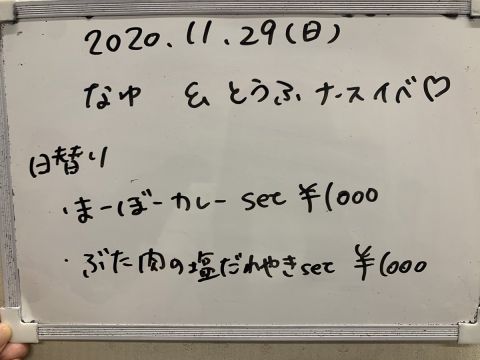 2020.11.29(日)
なゆ & とうふ ナースイベ♡
日替り
・まーぼーカレー sec ¥1000
・ぶた肉の塩だれやきsec ¥1000